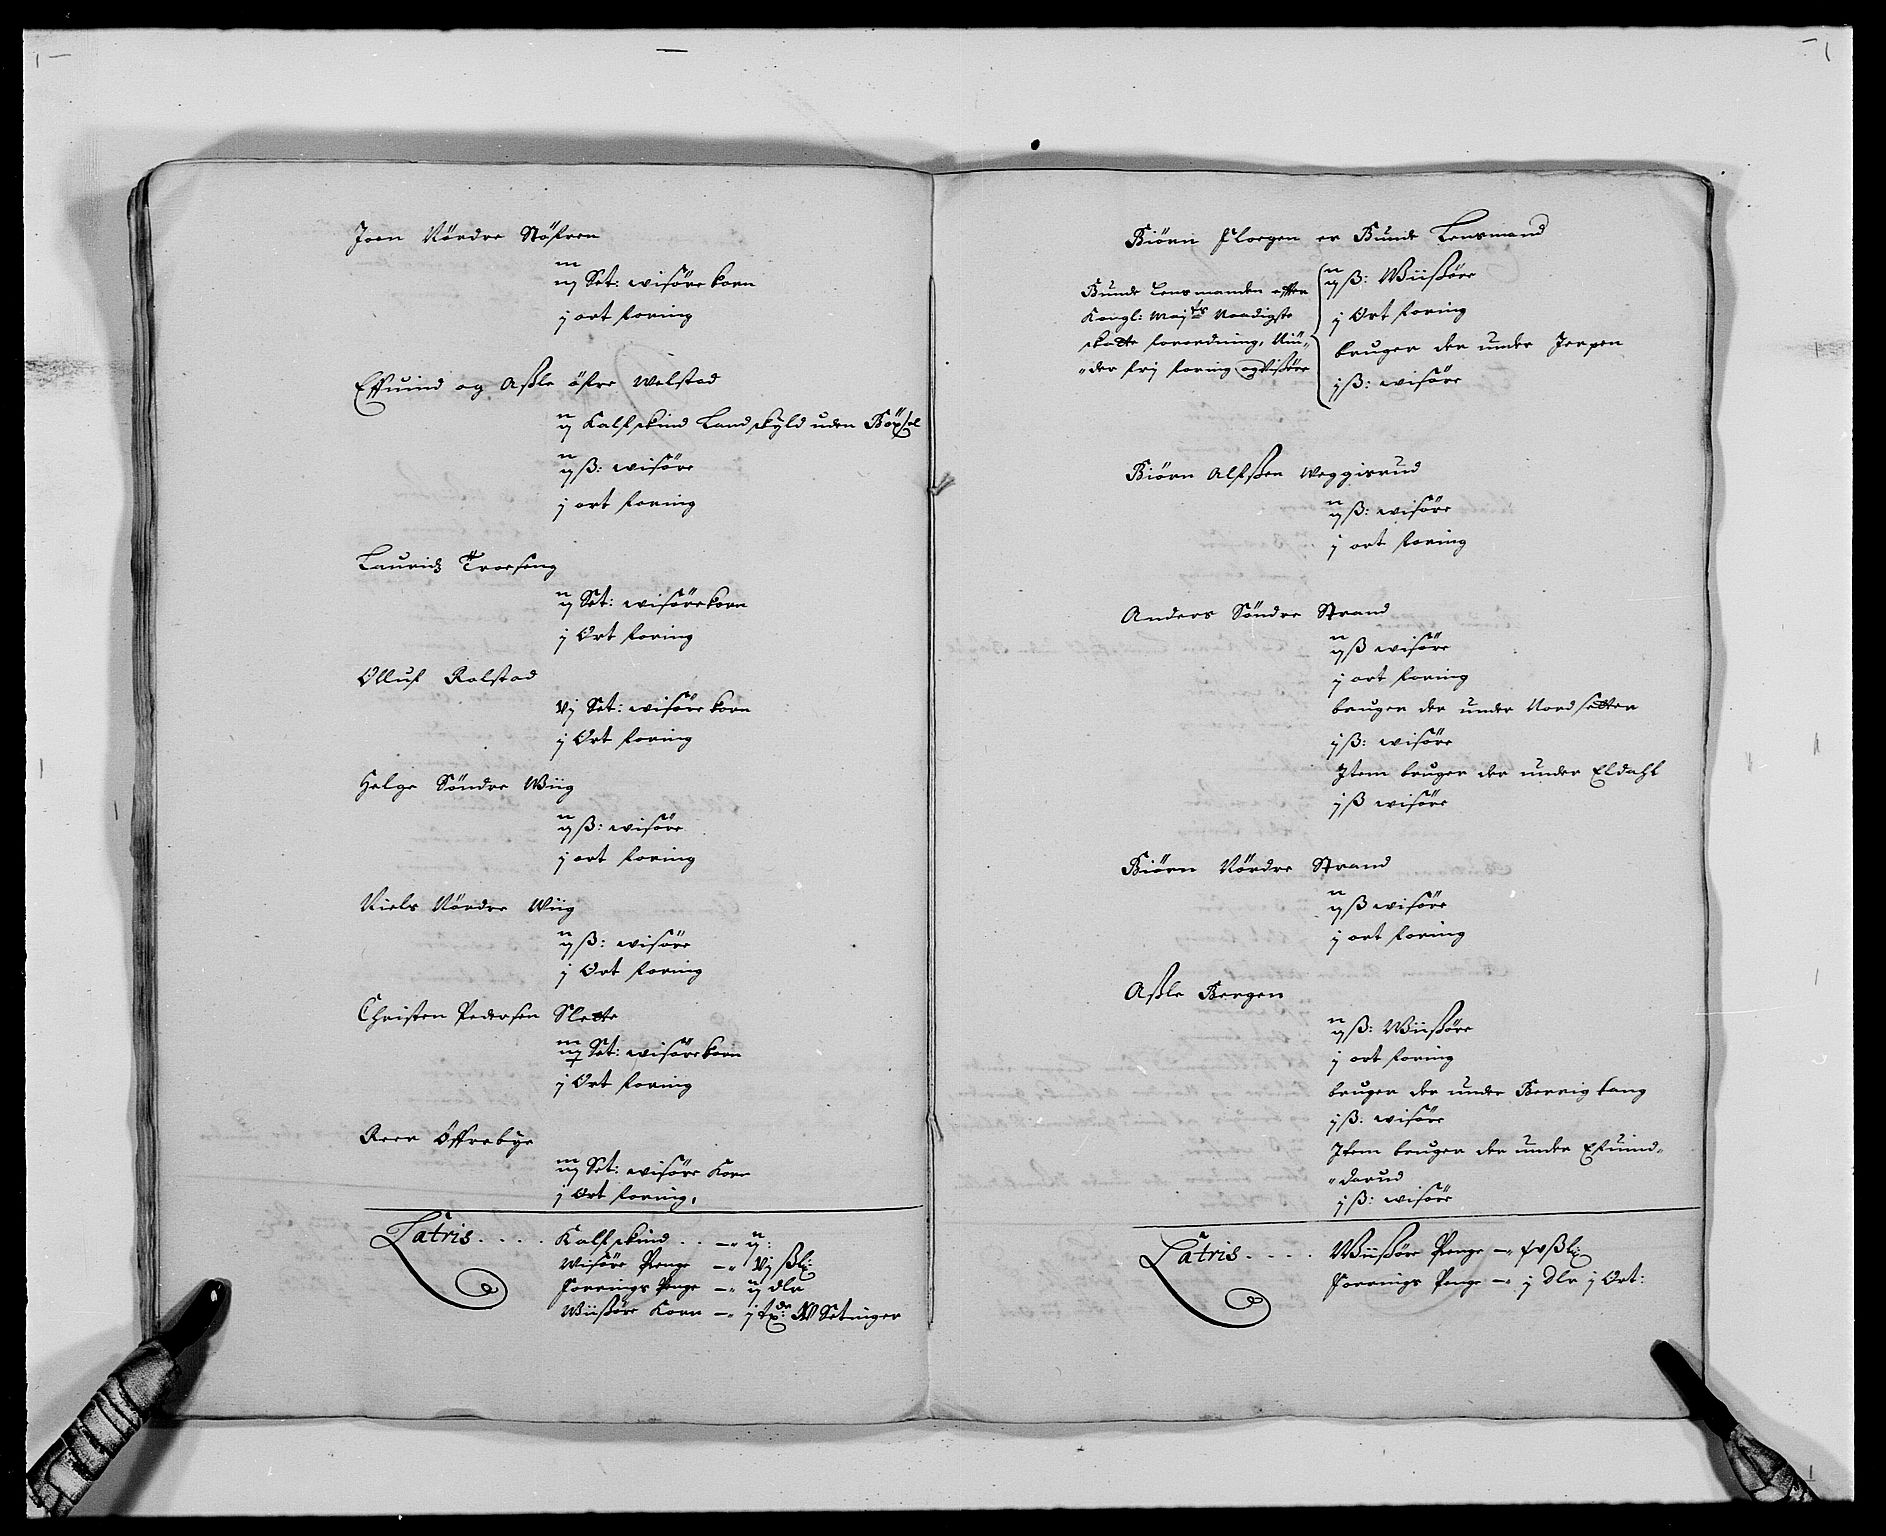 Joen Nördre Stöfren
iij Set: wisöre korn
j ort foring
Effuind og Aßle öfre Wolstad
ij Kalfskind Landskyld uden Böxsel
ij ß: wisöre
j ort foring
Lauridz Troeseng
ij Set: wisöre korn
j Ort foring
Olluf Rolstad
vj Set: wisöre korn
j Ort foring
Helge Söndre Wiig
ij ß: wisöre
j ort foring
Niels Nördre Wiig
ij ß: wisöre
j Ort foring
Christen Pedersen Slette
Set: wisöre korn
j Ort foring
Reer Öffrebye
iij Set: wisöre Korn
j Ort foring,
Latris . . . . Kalfskind . . — ij:
Wisöre Penge — vj ßl:
Forings Penge — ij dlr
Wiisöre Korn — j tde: Setinger
Biörn Floegen er Bunde Lensmand
Bunde Lensmanden efter
Kongl: Maj:ts Naadigste
skatte forordning, Niü-
der frj foring og Wißöre
ij ß: Wiisöre
j Ort foring
bruger der under Jerpen
j ß: wisöre
Biörn Alfsßen Weggisrud
ij ß: wisöre
j ort foring
Anders Söndre Strand
ij ß wisöre
j ort foring
bruger der under Nordsetter
j ß: wisöre
Item bruger der under Eldahl
j ß wisöre
Biörn Nördre Strand
ij ß wisöre
j ort foring
Aßle Bergen
ij ß: Wiisöre
j ort foring
bruger der under Berrig bang
j ß: wisöre
Item bruger der under Efuind-
darud
j ß: wisöre
Latris . . . . Wiisöre Penge — xv ßl:
Foerings Penge — j Dlr j Ort: